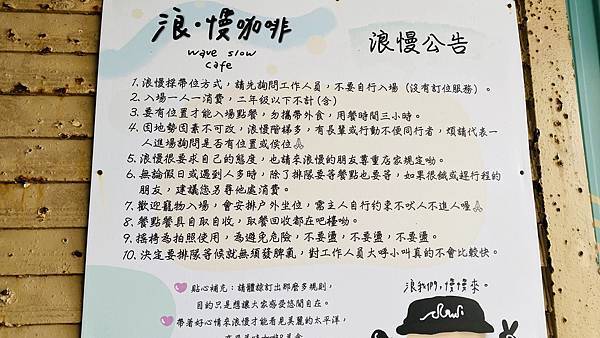 浪·慢咖啡
wave slow
cafe
浪慢公告
1. 浪慢採帶位方式，請先詢問工作人員，不要自行入場（沒有訂位服務）。
2. 入場一人一消費，二年級以下不計(含)
3. 要有位置才能入場點餐，勿攜帶外食，用餐時間三小時。
4. 因地勢因素不可改，浪慢階梯多，有長輩或行動不便同行者，煩請代表一
人進場詢問是否有位置或候位🙏
5. 浪慢很要求自己的態度，也請來浪慢的朋友尊重店家規定呦。
6. 無論假日或遇到人多時，除了排隊要等餐點也要等，如果很餓或趕行程的
朋友，建議您另尋他處消費。
7. 歡迎寵物入場，會安排戶外坐位，需主人自行約束不吠人不進人喔🙏
8. 餐點餐具自取自收，取餐回收都在吧檯呦。
9. 搖椅為拍照使用，為避免危險，不要盪，不要盪，不要盪。
10. 決定要排隊等候就無須發脾氣，對工作人員大呼小叫真的不會比較快。
貼心補充：請體諒訂出那麼多規則，
目的只是想讓大家感受悠閒自在。
帶著好心情來浪慢才能看見美麗的太平洋，
浪我們，慢慢來。